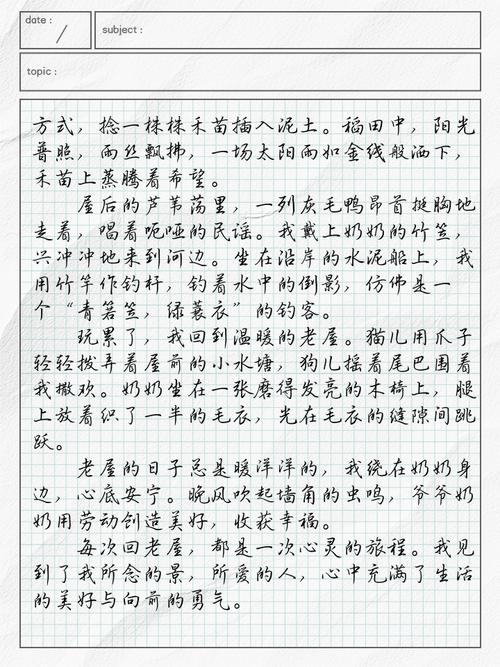 date :
subject :
topic :
方式，捻一株株禾苗插入泥土。稻田中，阳光
普照，雨丝飘拂，一场太阳雨如金线般洒下，
禾苗上蒸腾着希望。
屋后的芦苇荡里，一列灰毛鸭昂首挺胸地
走着，唱着呃哑的民谣。我戴上奶奶的竹笠，
兴冲冲地来到河边。坐在沿岸的水泥船上，我
用竹竿作钓杆，钓着水中的倒影，仿佛是一
个“青箬笠，绿蓑衣”的钓客。
玩累了，我回到温暖的老屋。猫儿用爪子
轻轻拨弄着屋前的小水塘，狗儿摇着尾巴围着
我撒欢。奶奶坐在一张磨得发亮的木椅上，腿
上放着织了一半的毛衣，光在毛衣的缝隙间跳
跃。
老屋的日子总是暖洋洋的，我绕在奶奶身
边，心底安宁。晚风吹起墙角的虫鸣，爷爷奶
奶用劳动创造美好，收获幸福。
每次回老屋，都是一次心灵的旅程。我见
到了我所念的景，所爱的人，心中充满了生活
的美好与向前的勇气。